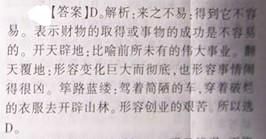 【答案】D。解析:来之不易:得到它不容
易。表示财物的取得或事物的成功是不容易
的。开天辟地:比喻前所未有的伟大事业。翻
天覆地:形容变化巨大而彻底,也形容事情闹
得很凶。筚路蓝缕:驾着简陋的车,穿着破烂
的衣服去开辟山林。形容创业的艰苦。所以选
D。